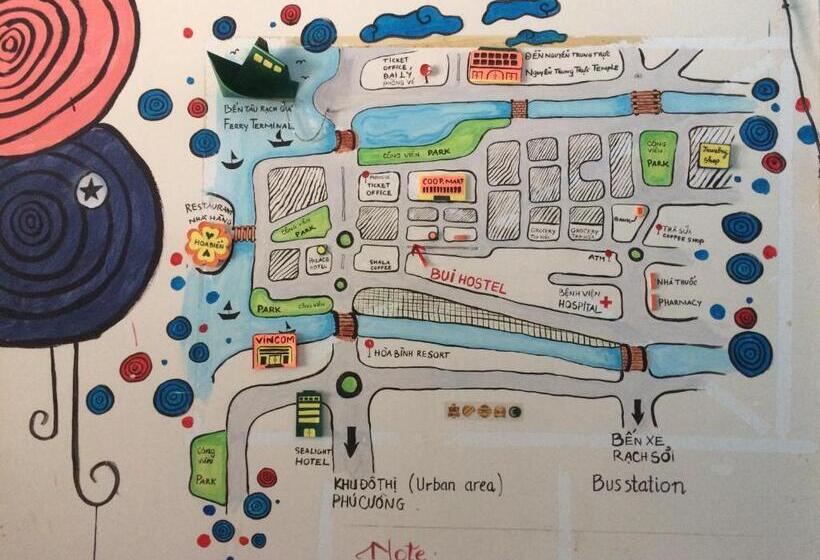 TICKET
OFFICE,
ĐẠI LÝ
PHÒNG VÉ
ĐỀN NGUYỄN TRUNG TRỰC
NGUYỄN TRUNG TRỰC TEMPLE
BẾN TÀU RẠCH GIÁ
FERRY TERMINAL
CÔNG VIÊN PARK
CÔNG
VIÊN
PARK
Jewelry
Shop
TICKET
OFFICE
COOP.MART
RESTAURANT
NHÀ HÀNG
HOA BIỂN
CÔNG VIÊN
PARK
PALACE
HOTEL
SHALA
COFFEE
GROCERY
GROCERY
BANK
TRÀ SỮA
COFFEE SHOP
BUI HOSTEL
ATM
BỆNH VIỆN
HOSPITAL
NHÀ THUỐC
PHARMACY
PARK CÔNG VIÊN
VINCOM
HÒA BÌNH RESORT
SEALIGHT
HOTEL
CÔNG
VIÊN
PARK
KHU ĐÔ THỊ (Urban area)
PHÚ CƯỜNG
BẾN XE
RẠCH SỎI
Bus station
Note: